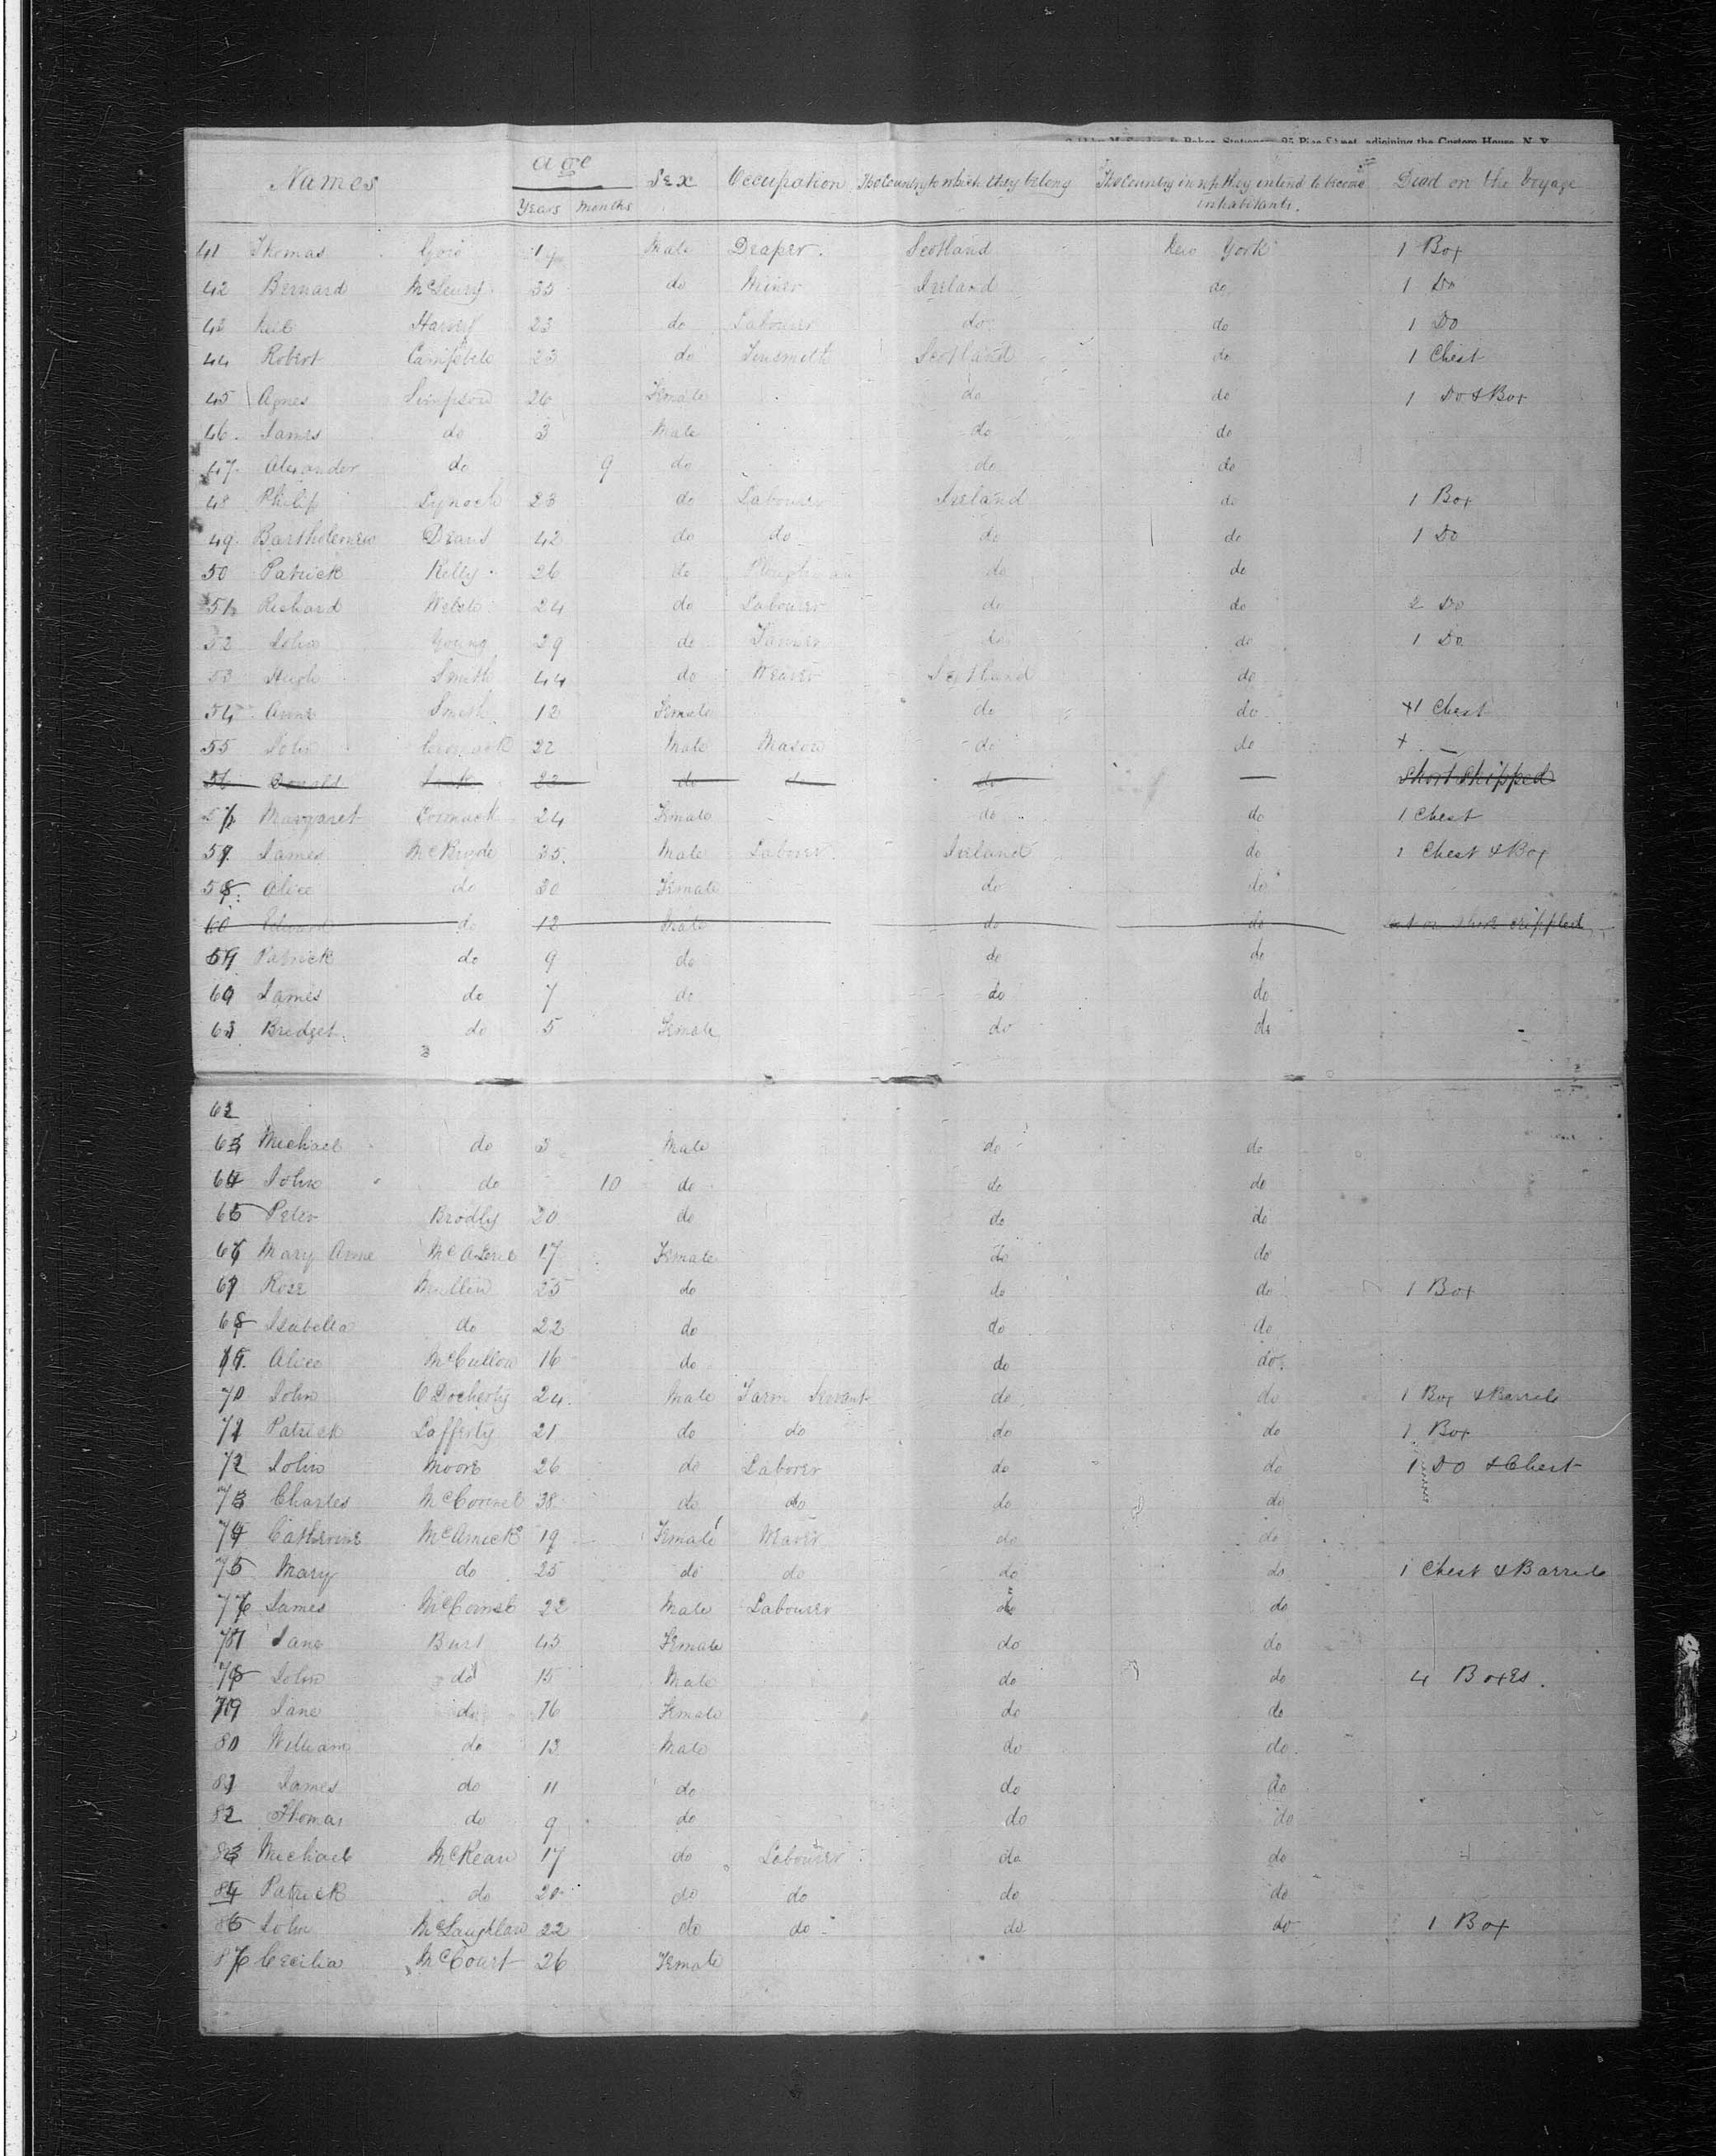 25 Pine Street, adjoining the Custom House, N. Y.
Names Age Sex Occupation The Country to which they belong The Country in wh they intend to become inhabitants. Died on the Voyage
Years Months
41 Thomas 19 Male Draper. Scotland New York 1 Box
42 Bernard 35 do Miner Ireland do 1 Do
43 Neil Harvey 23 do Labourer do do 1 Do
44 Robert Campbell 23 do Tinsmith Scotland do 1 Chest
45 Agnes Simpson 26 Female do do 1 Do & Box
46. James do 3 Male do do
47. Alexander do 9 do do do
48 Philip Lynoch 23 do Labourer Ireland do 1 Box
49. Bartholemew Deans 42 do do do do 1 Do
50 Patrick Kelly 26 do Ploughman do do
51 Richard Welsh 24 do Labourer do do 2 Do
52 John Young 29 do do do 1 Do
53 Hugh Smith 44 do Weaver Scotland do
54 Anne Smith 12 Female do do +1 Chest
55 John Cormack 22 Male Mason do do +
56 Donald 22 do do do Short Shipped
57 Margaret Cormack 24 Female do do 1 Chest
57 James McBride 35. Male Labourer Ireland do 1 Chest & Box
58 Alice do 30 Female do do
60 Edward do 12 Male do do
59 Patrick do 9 do do do
60 James do 7 do do do
61 Bridget. do 5 Female do do
62
63 Michael do 3 Male do do
64 John do 10 do do do
65 Peter Brodly 20 do do do
66 Mary Anne 17 Female do do
67 Rose Mullen 25 do do do 1 Box
68 Isabella do 22 do do do
69. Alice McCullow 16 do do do.
70 John O'Docherty 24. Male Farm Servant do do 1 Box & Barrel
71 Patrick Lafferty 21 do do do do 1 Box
72 John Moore 26 do Laborer do do 1 Do & Chest
73 Charles McConnel 38 do do do do
74 Catherine McAmick 19 Female Waver do do
75 Mary do 25 do do do do 1 Chest & Barrel
76 James 22 Male Labourer do do
77 Jane Burt 45 Female do do
78 John do 15 Male do do 4 Boxes.
79 Jane do 16 Female do do
80 William do 13 Male do do
81 James do 11 do do do
82 Thomas do 9 do do do
83 Michael McKean 17 do Labourer do do
84 Patrick do 20 do do do do
85 John McLaughlan 22 do do do do 1 Box
86 Cecilia McCourt 26 Female